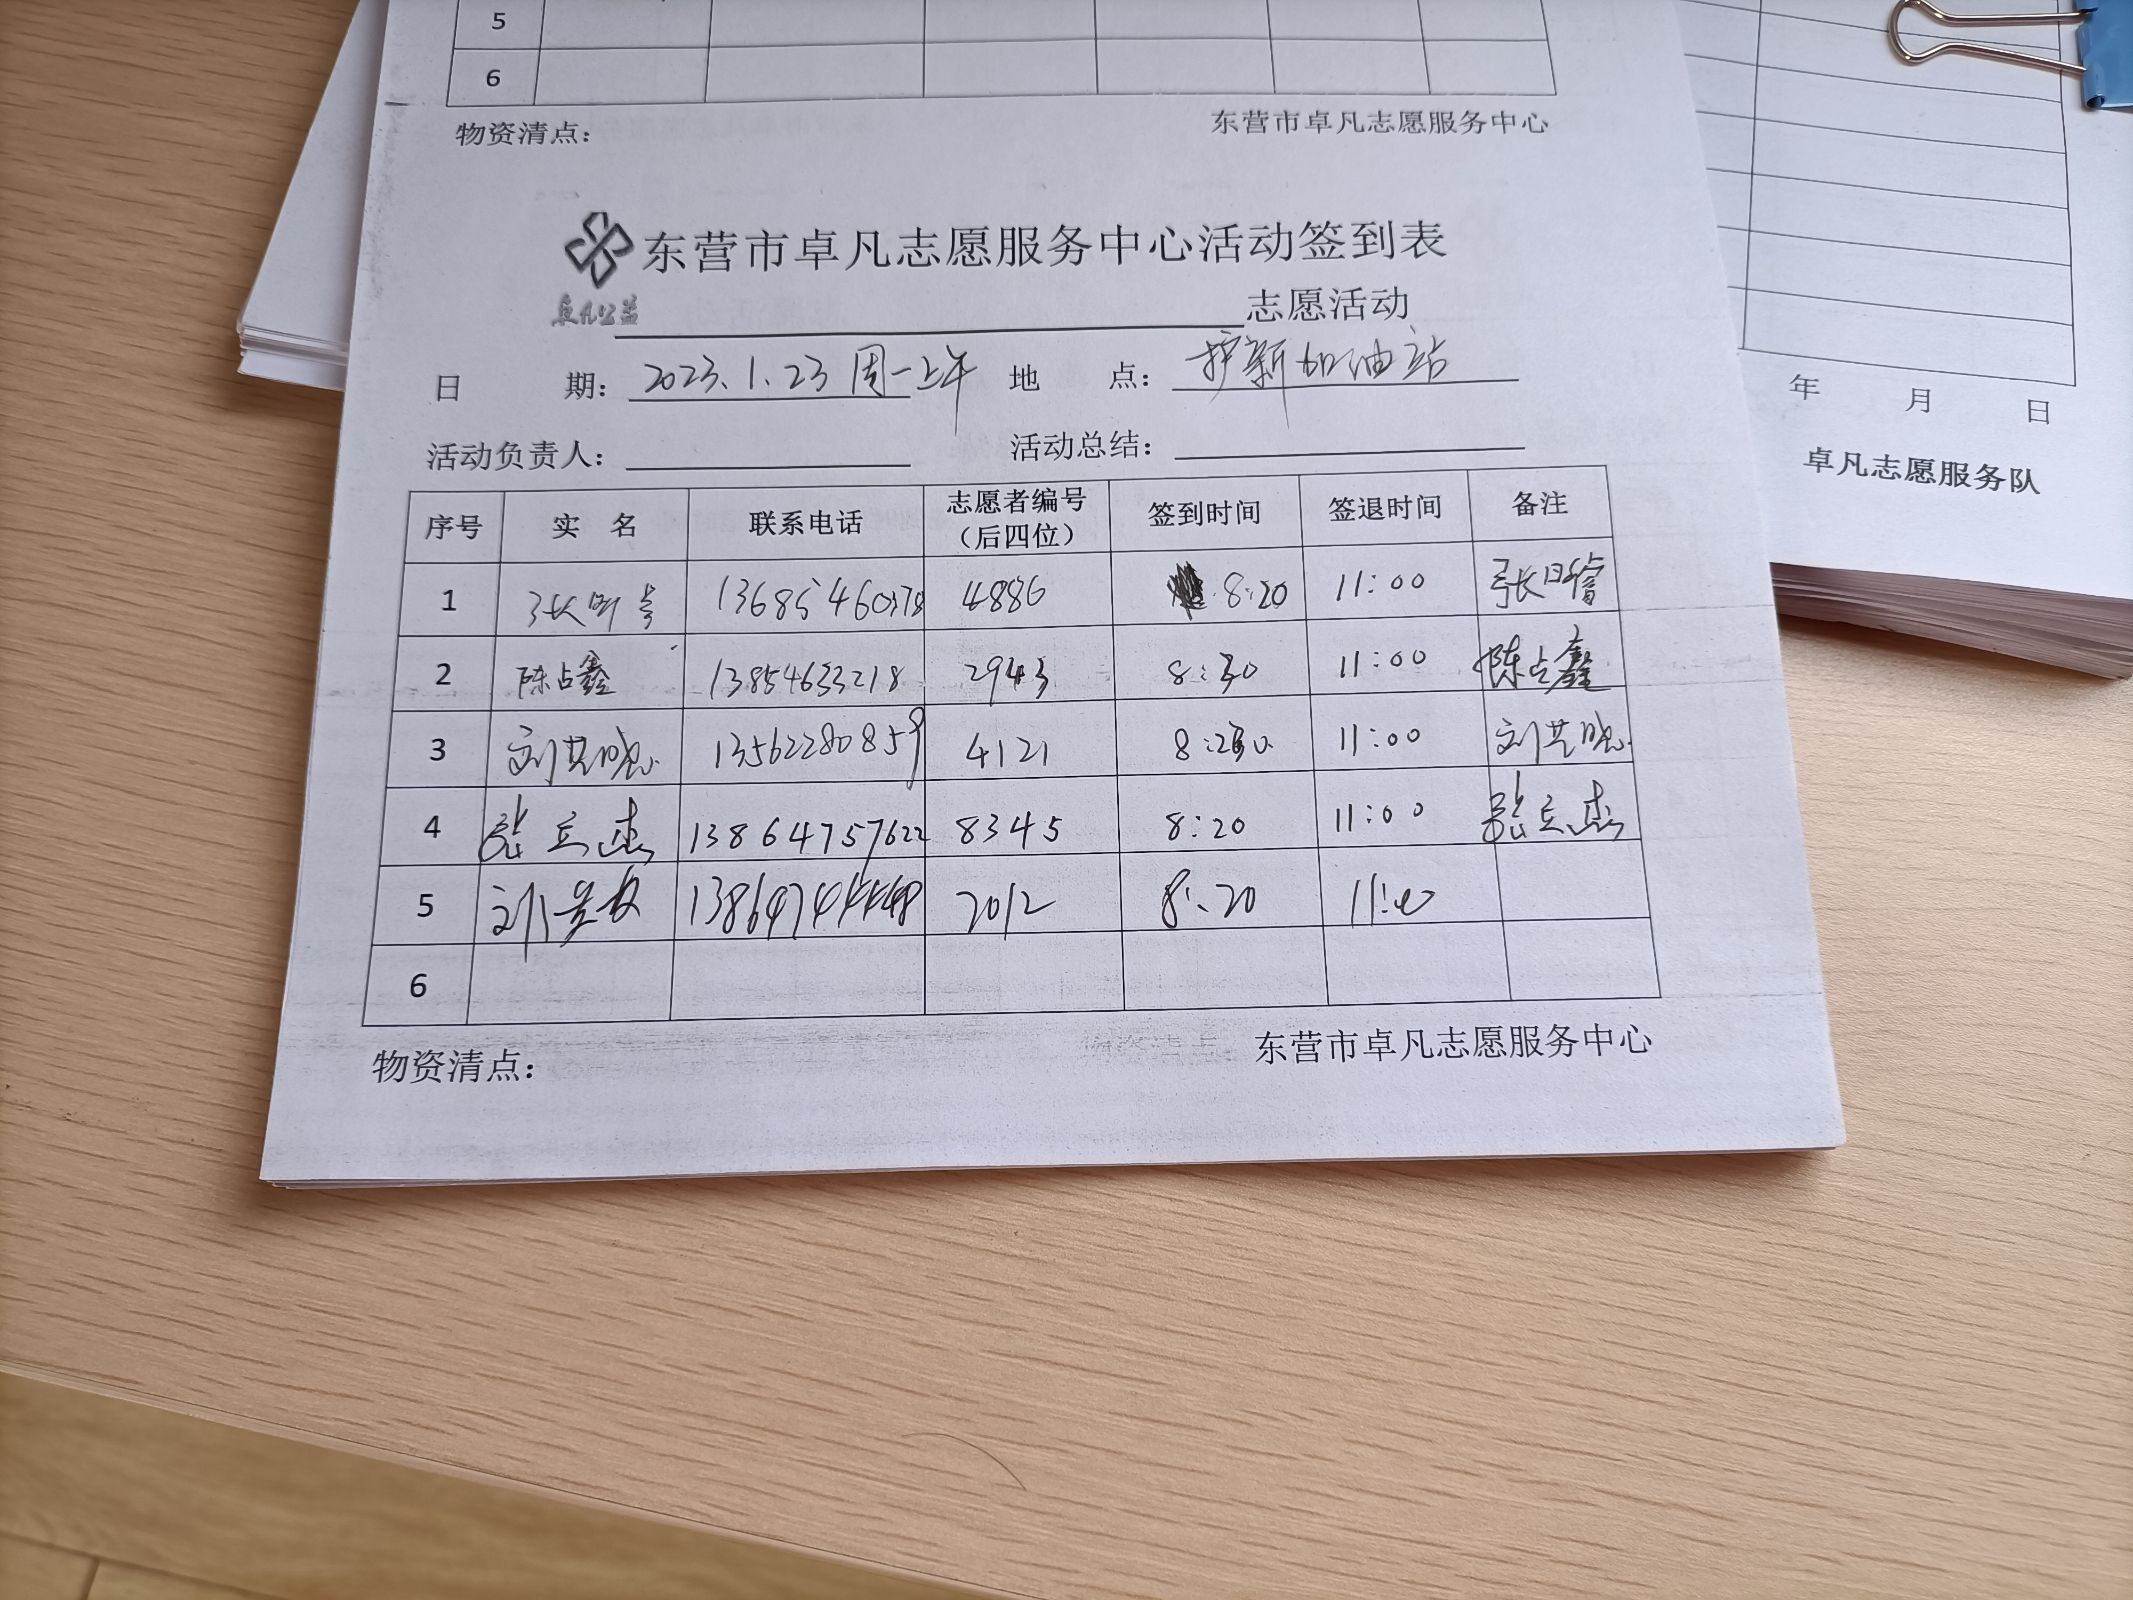 5
6
物资清点： 东营市卓凡志愿服务中心
东营市卓凡志愿服务中心活动签到表
卓凡公益
志愿活动
日 期： 2023.1.23 周一上午 地 点： 护新加油站
活动负责人： 活动总结：
序号 实 名 联系电话 志愿者编号（后四位） 签到时间 签退时间 备注
1 13685460378 4886 8:20 11:00
2 陈占鑫 13854633218 2943 8:30 11:00 陈占鑫
3 13562280859 4121 11:00
4 张立杰 13864757622 8345 8:20 11:00 张立杰
5 2012 8:20
6
物资清点： 东营市卓凡志愿服务中心
年 月 日
卓凡志愿服务队